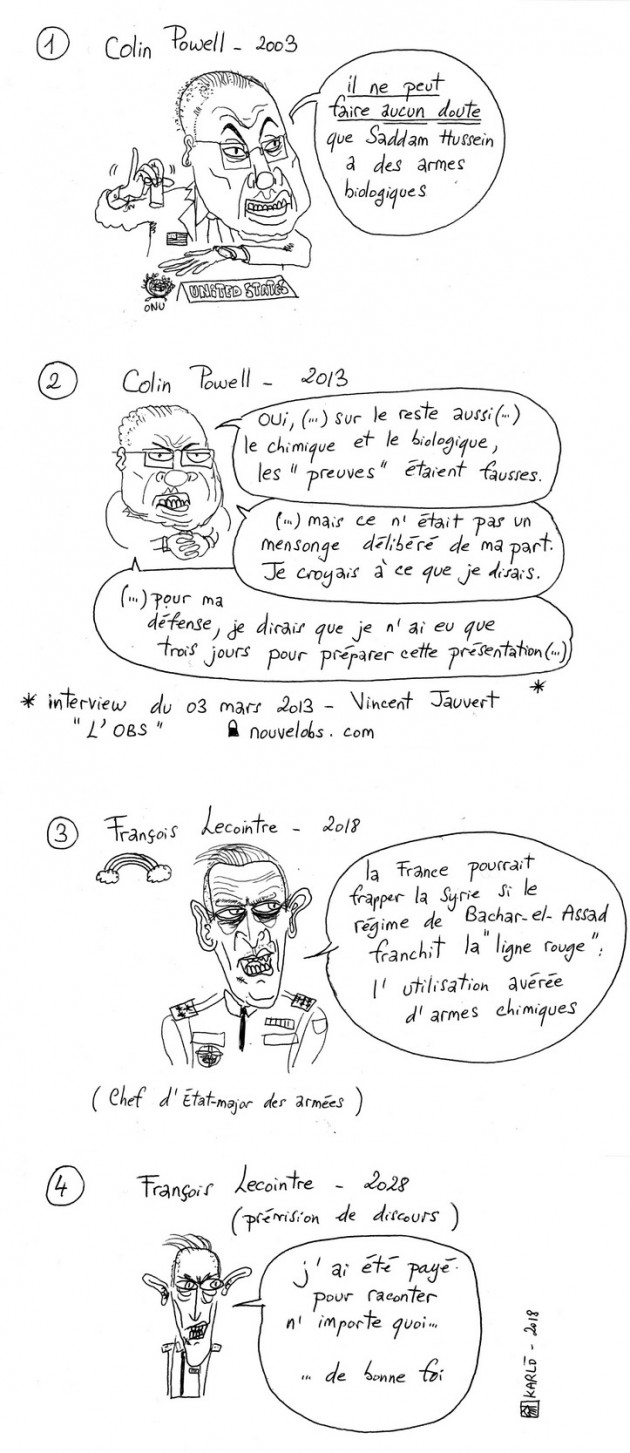 1 Colin Powell - 2003
il ne peut
faire aucun doute
que Saddam Hussein
a des armes
biologiques
ONU
UNITED STATES
2 Colin Powell - 2013
OUi, (...) sur le reste aussi (...)
le chimique et le biologique,
les "preuves" étaient fausses.
(...) mais ce n'était pas un
mensonge délibéré de ma part.
Je croyais à ce que je disais.
(...) pour ma
défense, je dirais que je n'ai eu que
trois jours pour préparer cette présentation (...)
* interview du 03 mars 2013 - Vincent Jauvert *
"L'OBS" nouvelobs.com
3 François Lecointre - 2018
la France pourrait
frapper la Syrie si le
régime de Bachar-el-Assad
franchit la "ligne rouge":
l'utilisation avérée
d'armes chimiques
(Chef d'État-major des armées)
4 François Lecointre - 2028
(prévision de discours)
j'ai été payé
pour raconter
n'importe quoi...
... de bonne foi
KARLÖ - 2018